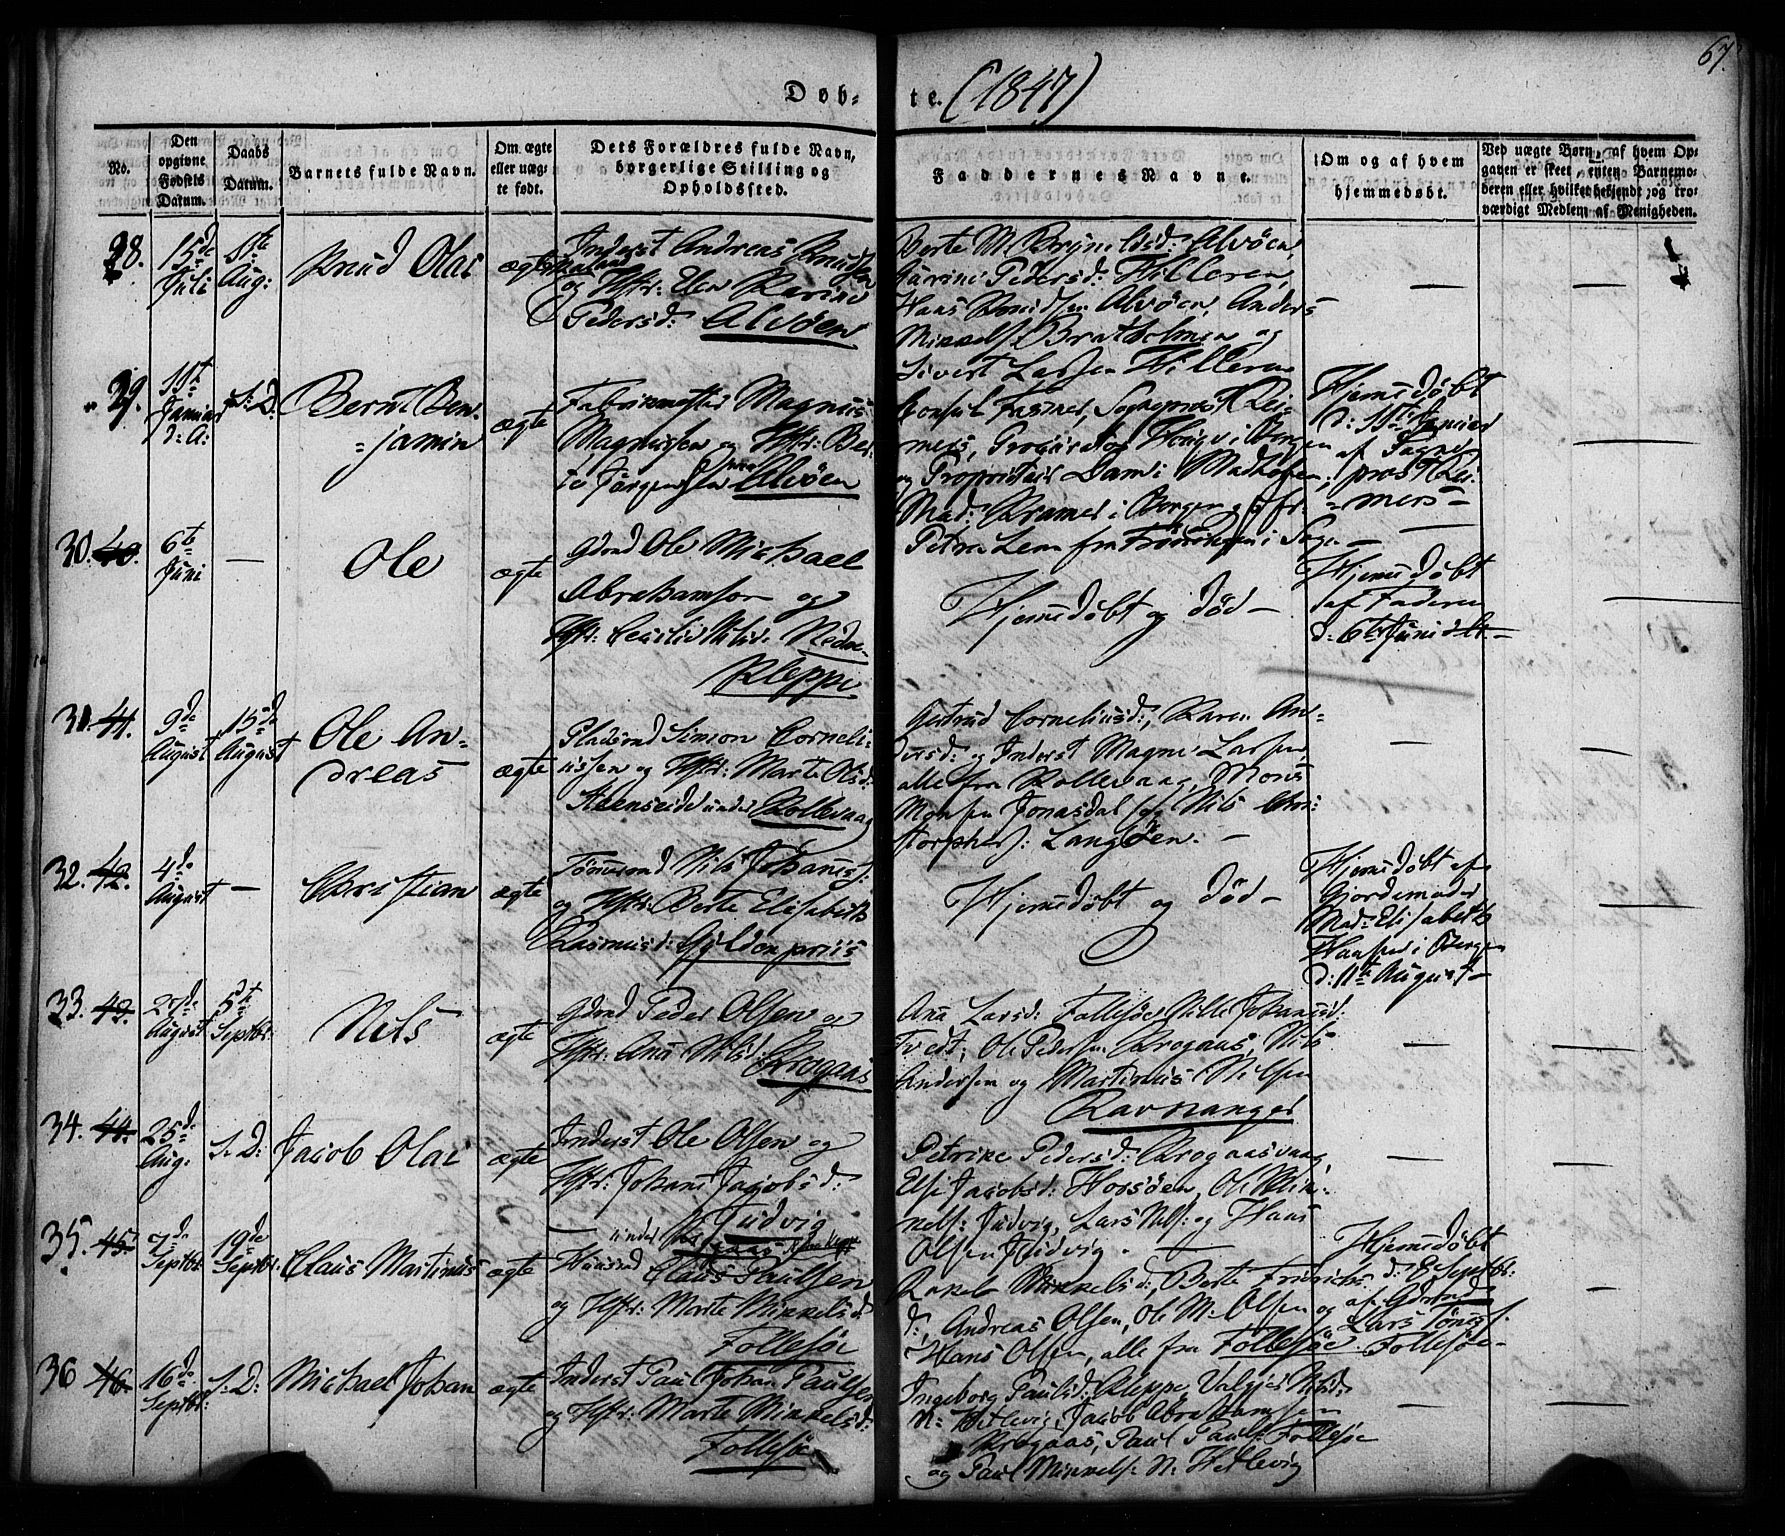 67.
Døb- te. (1847)
No.
Den opgivne Fødsels Datum.
Daabs Datum.
Barnets fulde Navn.
Om ægte eller uægte født.
Dets Forældres fulde Navn, borgerlige Stilling og Opholdssted.
Faddernes Navne.
Om og af hvem hjemmedøbt.
Ved uægte Børn, af hvem Opgaven er skeet, enten Barnemoderen eller hvilket bekjendt og troværdigt Medlem af Menigheden.
28.
15de Juli
Aug:
Knud Olai
ægte
Inderst Andreas Knudsen
og Hstr: Elen Karine
Pedersd: Alvøen
Berte M. Brynildsd: Alvøen,
Pedersd: Hilleren,
Haas Knudsen Alvøen, Anders
Mikkels: Bratholmen og
Sivert Larsen Hilleren
—
—
29.
11te Januar d: A:
S: D:
Bernt Ben-
jamin
ægte
Fabrikmester Magnus
Magnussen og Hstr: Ber-
te Jørgensen Alvøen
Consul Fasmer, Sogneprest Rei-
mers, Procurator i Bergen
og Proprietair Dam i
Mad: Kramer i Bergen og Jfr:
Petra Lem fra i Sogn —
Hjemmedøbt
d: 11te Januar
af Sogne-
prest Rei-
mers —
—
30. 40.
6te Juni
—
Ole
ægte
Gdmd Ole Michael
Abrahamson og
Hstr: Cecilie Nilsd: Nedre
Kleppe
Hjemmedøbt og død —
Hjemmedøbt
af Faderen
d: 6te Juni
—
31. 41.
9de August
15de August
Ole An-
dreas
ægte
Pladsmd Simon Corneli-
ussen og Hstr: Marte Olsd:
Steenseide under Kollevaag
Gertrud Corneliusd:, Karen An-
dersd: og Inderst Magne Larsen
alle fra Kollevaag, Mons
Monsen Jonasdal og Nils Chri-
stophers: Langøen. —
—
—
32. 42.
4de August
—
Christian
ægte
Nils Johannes:
og Hstr: Berte Elisabeth
Rasmusd: Gyldenpriis
Hjemmedøbt og død —
Hjemmedøbt af
Gjordemoder
Mad: Elisabeth
i Bergen
d: 11te August —
—
33. 43.
27de August
5te Septbr:
Nils
ægte
Gdmd Peder Olsen og
Hstr: Ana Nilsd: Krogaas
Ana Larsd: Follesøe, Nille Johannisd:
Tvedt, Ole Pedersen Krogaas, Nils
Andersen og Martinus Nilsen
Ravnanger
—
—
34. 44.
25de Aug:
S: D:
Jacob Olai
ægte
Inderst Ole Olsen og
Hstr: Johane Jacobsd:
— Judvig —
under Krogaas
Petrine Pedersd: Krogaasvaag,
Else Jacobsd: Horsøen, Ole Mik-
kels: Judvig, Lars Nils: og Haas
Olsen Judvig. —
—
—
35. 45.
7de Septbr:
19de Septbr:
Claus Martinus
ægte
Huusmd Claus Paulsen
og Hstr: Marte Mikkelsd:
Follesøe
Rakel Mikkelsd:, Berte Fredriks-
d:, Andreas Olsen, Ole M. Olsen og
Hans Olsen, alle fra Follesøe.
Hjemmedøbt
d: 8 Septbr:
af Gdmd
Lars Tøness:
Follesøe —
—
36 46.
16de Septbr:
S: D:
Michael Johan
ægte
Inderst Paul Johan Paulsen
og Hstr: Marte Mikkelsd:
Follesøe
Ingeborg Paulsd: Kleppe, Nilsd:
N: Hetlevig, Jacob Abrahamsen
Krogaas, Paul Pauls: Follesøe
og Paul Mikkels: N: Hetlevig
—
—